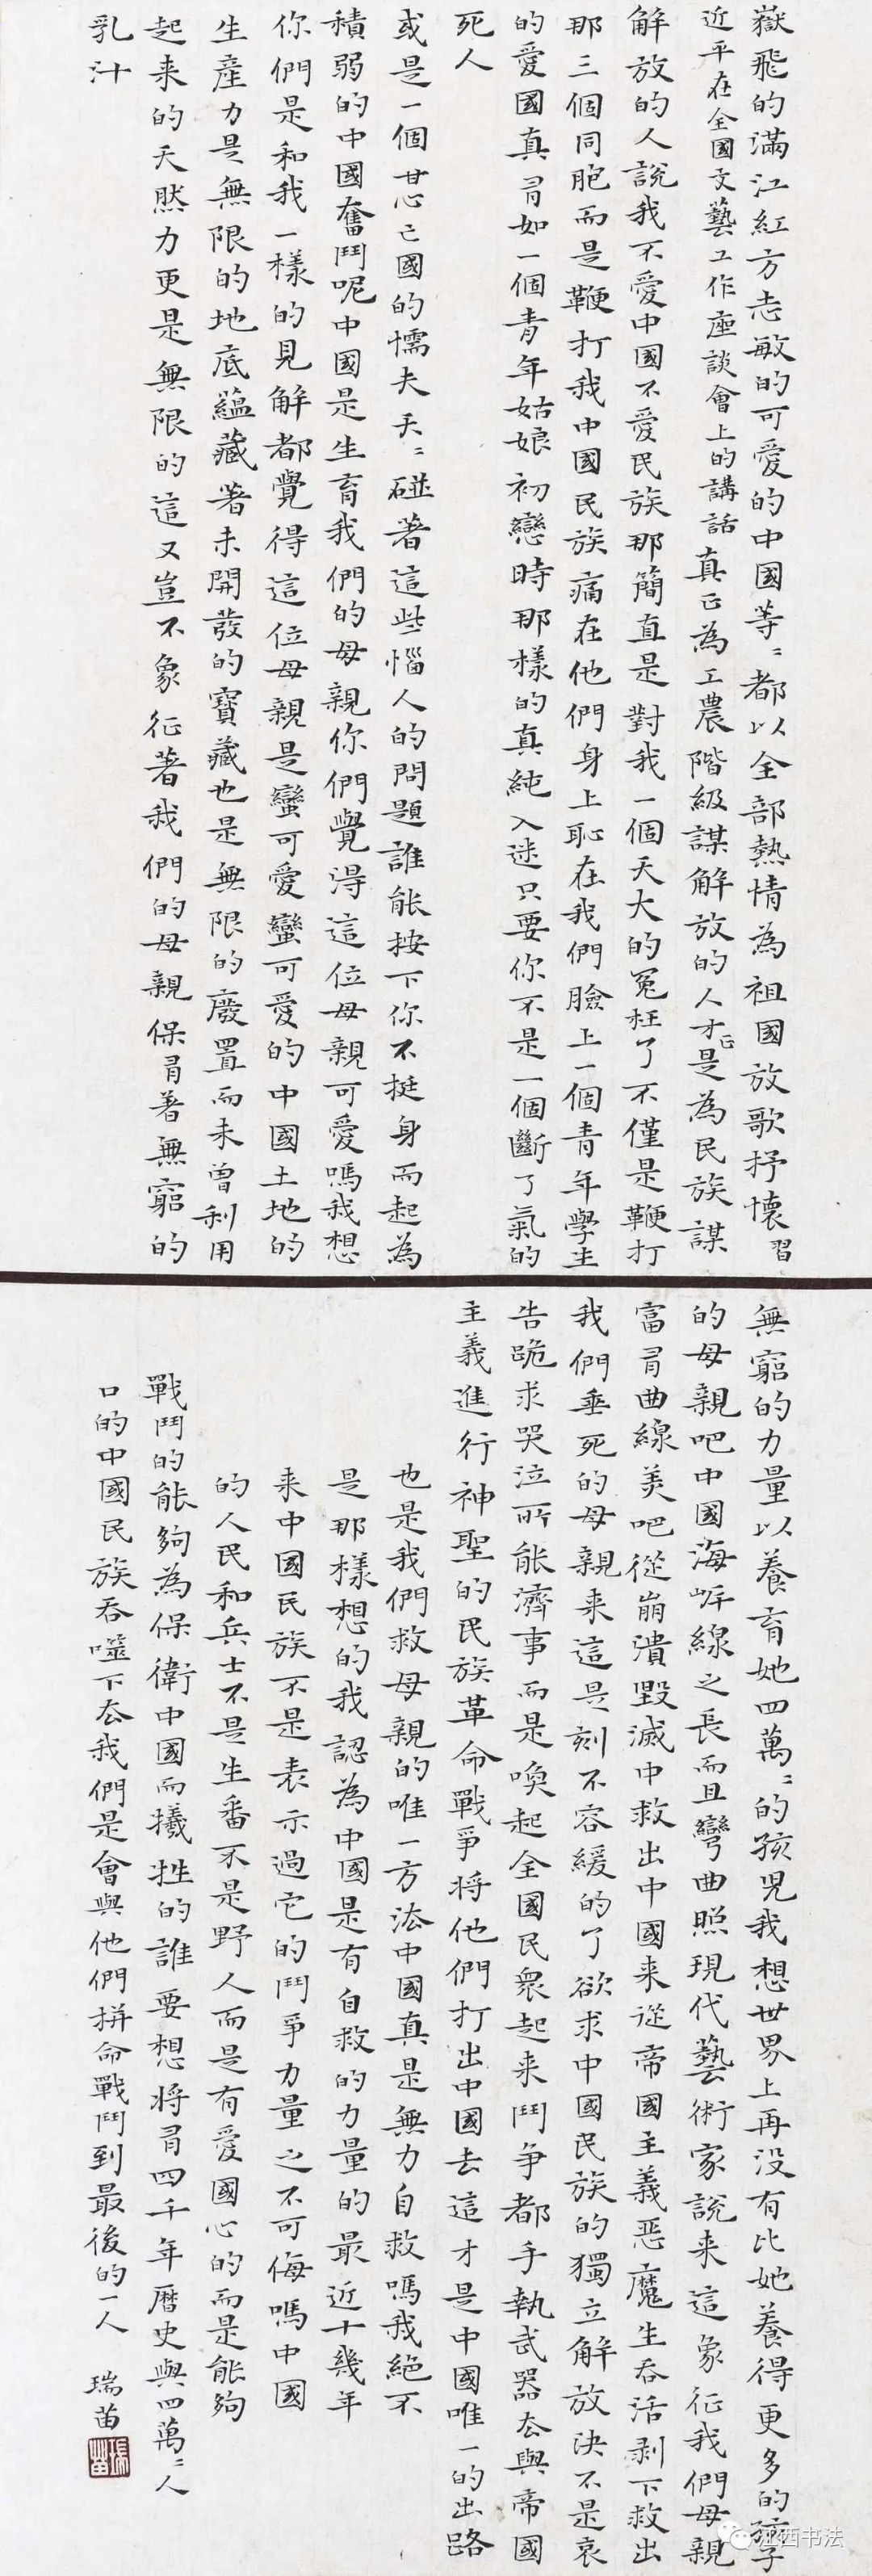 嶽飛的滿江紅方志敏的可愛的中國等〻都以全部熱情為祖國放歌抒懷習
近平在全國文藝工作座談會上的講話真正為工農階級謀解放的人才正是為民族謀
解放的人說我不愛中國不愛民族那簡直是對我一個天大的冤枉了不僅是鞭打
那三個同胞而是鞭打我中國民族痛在他們身上恥在我們臉上一個青年學生
的愛國真有如一個青年姑娘初戀時那樣的真純入迷只要你不是一個斷了氣的
死人
或是一個甘心亡國的懦夫天〻碰著這些惱人的問題誰能按下你不挺身而起為
積弱的中國奮鬥呢中國是生育我們的母親你們覺得這位母親可愛嗎我想
你們是和我一樣的見解都覺得這位母親是蠻可愛蠻可愛的中國土地的
生產力是無限的地底蘊藏著未開發的寶藏也是無限的廢置而未曾利用
起来的天然力更是無限的這又豈不象征著我們的母親保有著無窮的
乳汁
無窮的力量以養育她四萬〻的孩兒我想世界上再没有比她養得更多的孩子
的母親吧中國海岸線之長而且彎曲照現代藝術家說来這象征我們母親
富有曲線美吧從崩潰毀滅中救出中國来從帝國主義恶魔生吞活剥下救出
我們垂死的母親来這是刻不容緩的了欲求中國民族的獨立解放决不是哀
告跪求哭泣所能濟事而是唤起全國民衆起来鬥争都手執武器去與帝國
主義進行神聖的民族革命戰爭将他們打出中國去這才是中國唯一的出路
也是我們救母親的唯一方法中國真是無力自救嗎我絕不
是那樣想的我認為中國是有自救的力量的最近十幾年
来中國民族不是表示過它的鬥爭力量之不可侮嗎中國
的人民和兵士不是生番不是野人而是有愛國心的而是能夠
戰鬥的能夠為保衛中國而犧牲的誰要想将有四千年曆史與四萬〻人
口的中國民族吞噬下去我們是會與他們拼命戰鬥到最後的一人 瑞苗
瑞苗
江西书法